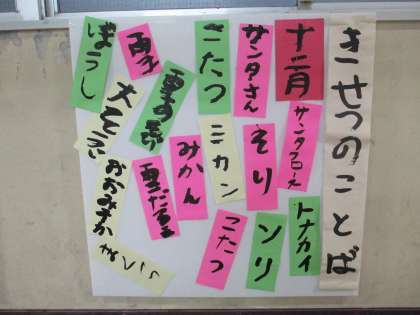 きせつのことば
十二月
サンタクロス
トナカイ
サンタさん
そり
ソリ
こたつ
ミカン
こたつ
みかん
雪あそび
雪だるま
雨子
大そうじ
ぼうし
おおみそか